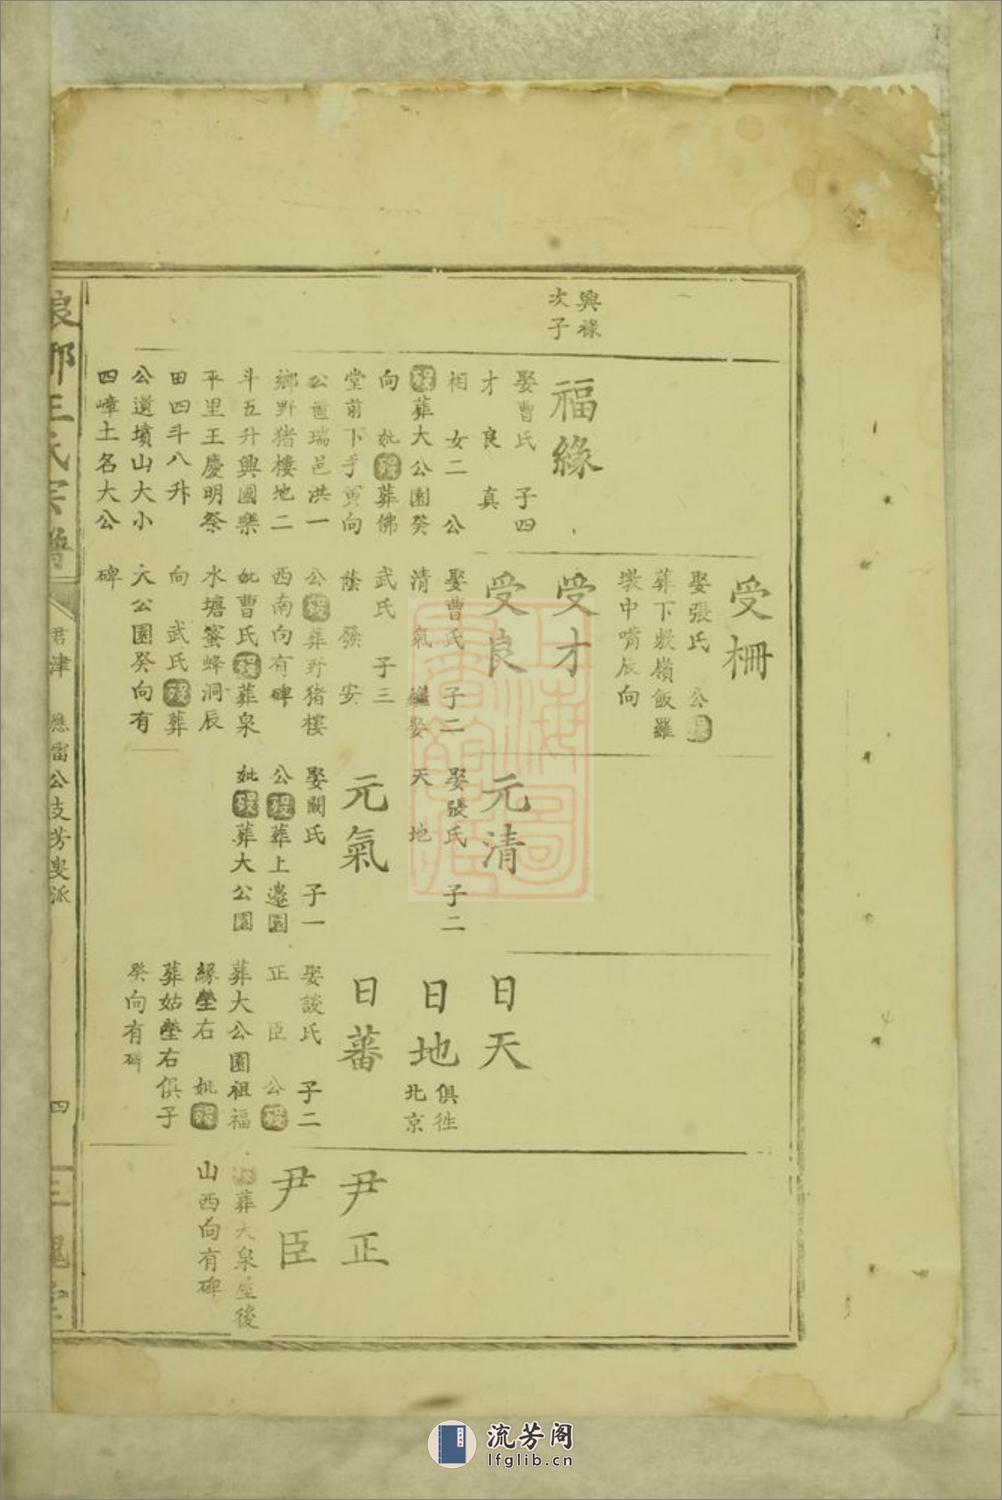 興祿
次子
福緣
娶曹氏 子四
才 良 真
相 女二 公
歿葬大公園癸
向 妣歿葬佛
堂前下手寅向
公置瑞邑洪一
鄉野猪樓地二
斗五升興國樂
平里王慶明祭
田四斗八升
公遺墳山大小
四嶂土名大公
受柵
娶張氏 公歿
葬下敖嶺飯羅
墩中嘴辰向
受才
受良
娶曹氏 子二
清 氣 繼娶
武氏 子三
蔭 發 安
公歿葬野猪樓
西南向有碑
妣曹氏歿葬泉
水塘蜜蜂洞辰
向 武氏歿葬
大公園癸向有
碑
元清
娶張氏 子二
天 地
元氣
娶闕氏 子一
公歿葬上邊園
妣歿葬大公園
日天
日地
俱徃
北京
日蕃
娶談氏 子二
正 臣 公歿
葬大公園祖福
緣塋右 妣歿
葬姑塋右俱子
癸向有碑
尹正
尹臣
葬大泉屋後
山西向有碑
琅琊王氏宗譜
君津 應雷公支芳叟派
四
三槐堂
上海圖書館藏
流芳阁
lfglib.cn